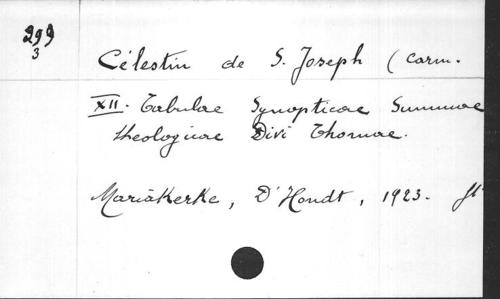 299
3
Célestin de S. Joseph (Carm.
XII. Tabulae Synopticae Summae
theologicae Divi Thomae.
Mariakerke, D'Hondt, 1923.